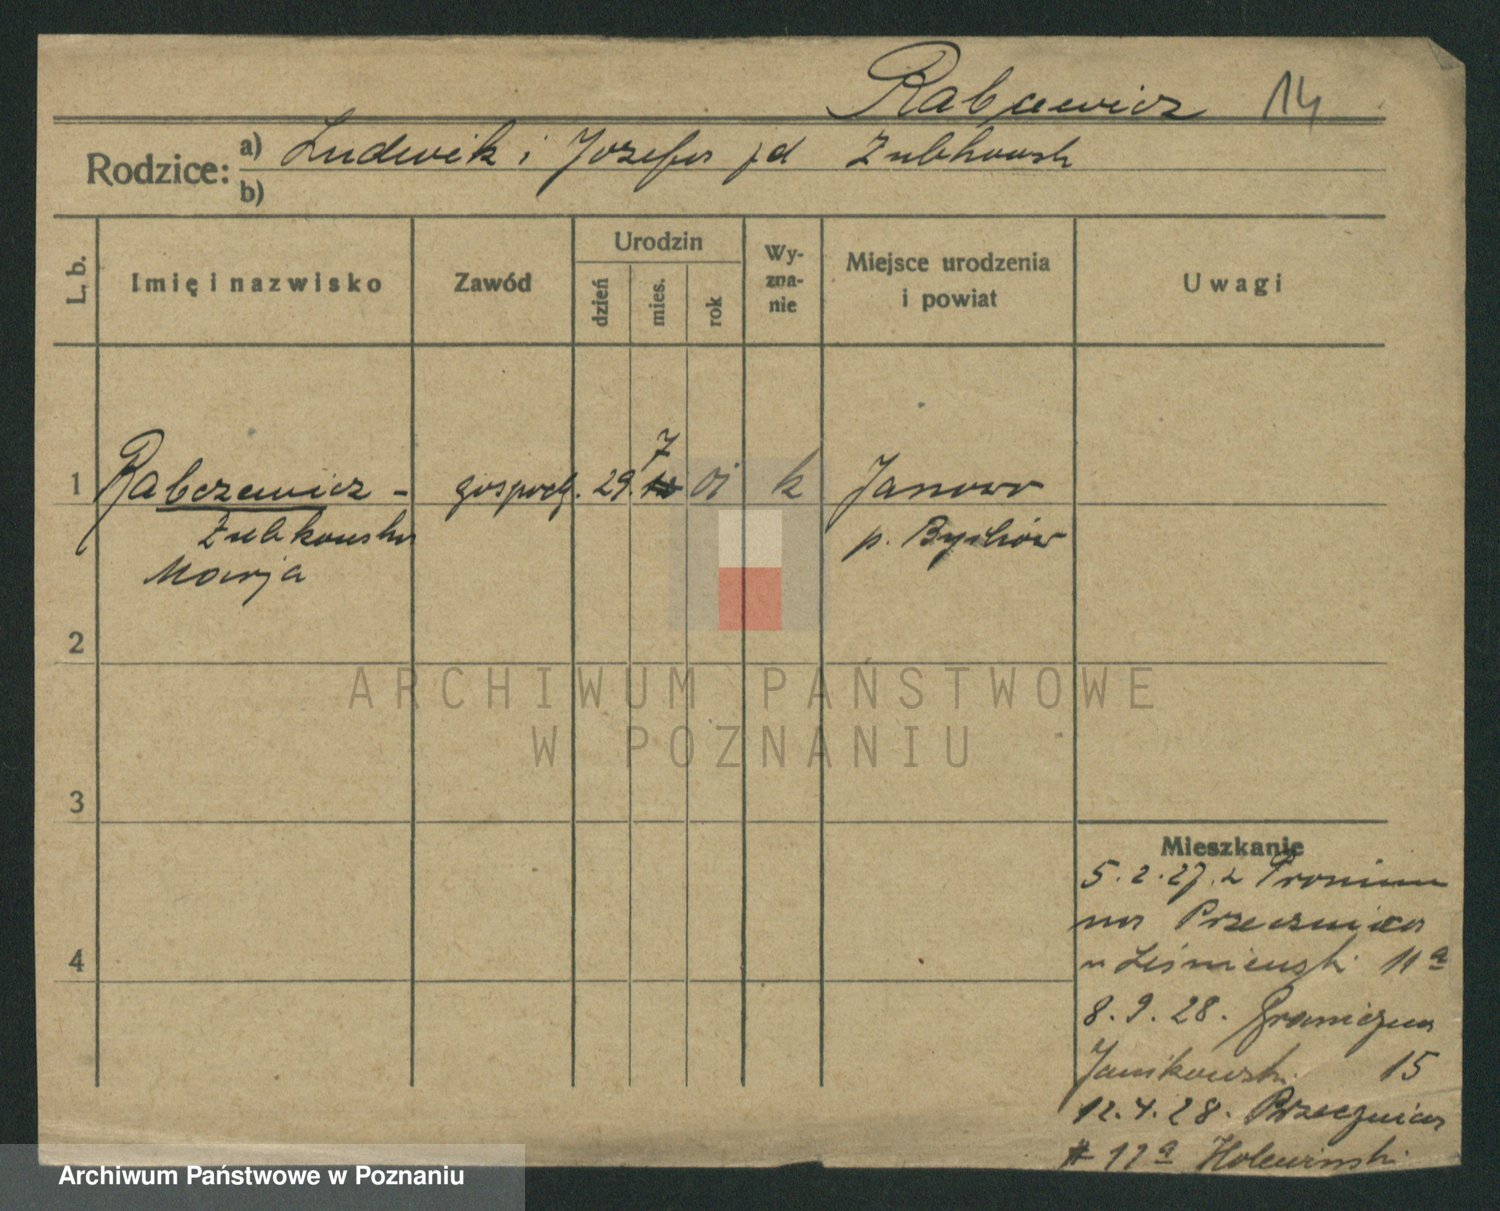 Rabcewicz 14
Rodzice: a) Ludwik i Józefa zd Zubkowsk
b)
L. b. Imię i nazwisko Zawód Urodzin dzień mies. rok Wy-zna-nie Miejsce urodzenia i powiat Uwagi
7
1 Rabczewicz - gospod. 29. 01 k Janowo
Zubkowska p. Bychów
Marja
2
ARCHIWUM PAŃSTWOWE
W POZNANIU
3
Mieszkanie
5.2.27. z
na Przecznica
u Leśniewski 11a
4
8.9.28. Graniczna
Janikowski 15
12.4.28. Przecznica
11a Holewinski
Archiwum Państwowe w Poznaniu